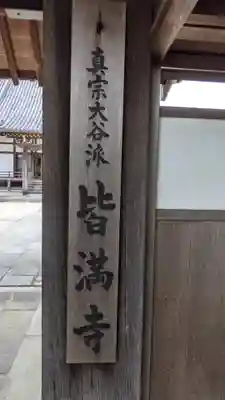 真宗大谷派
皆満寺